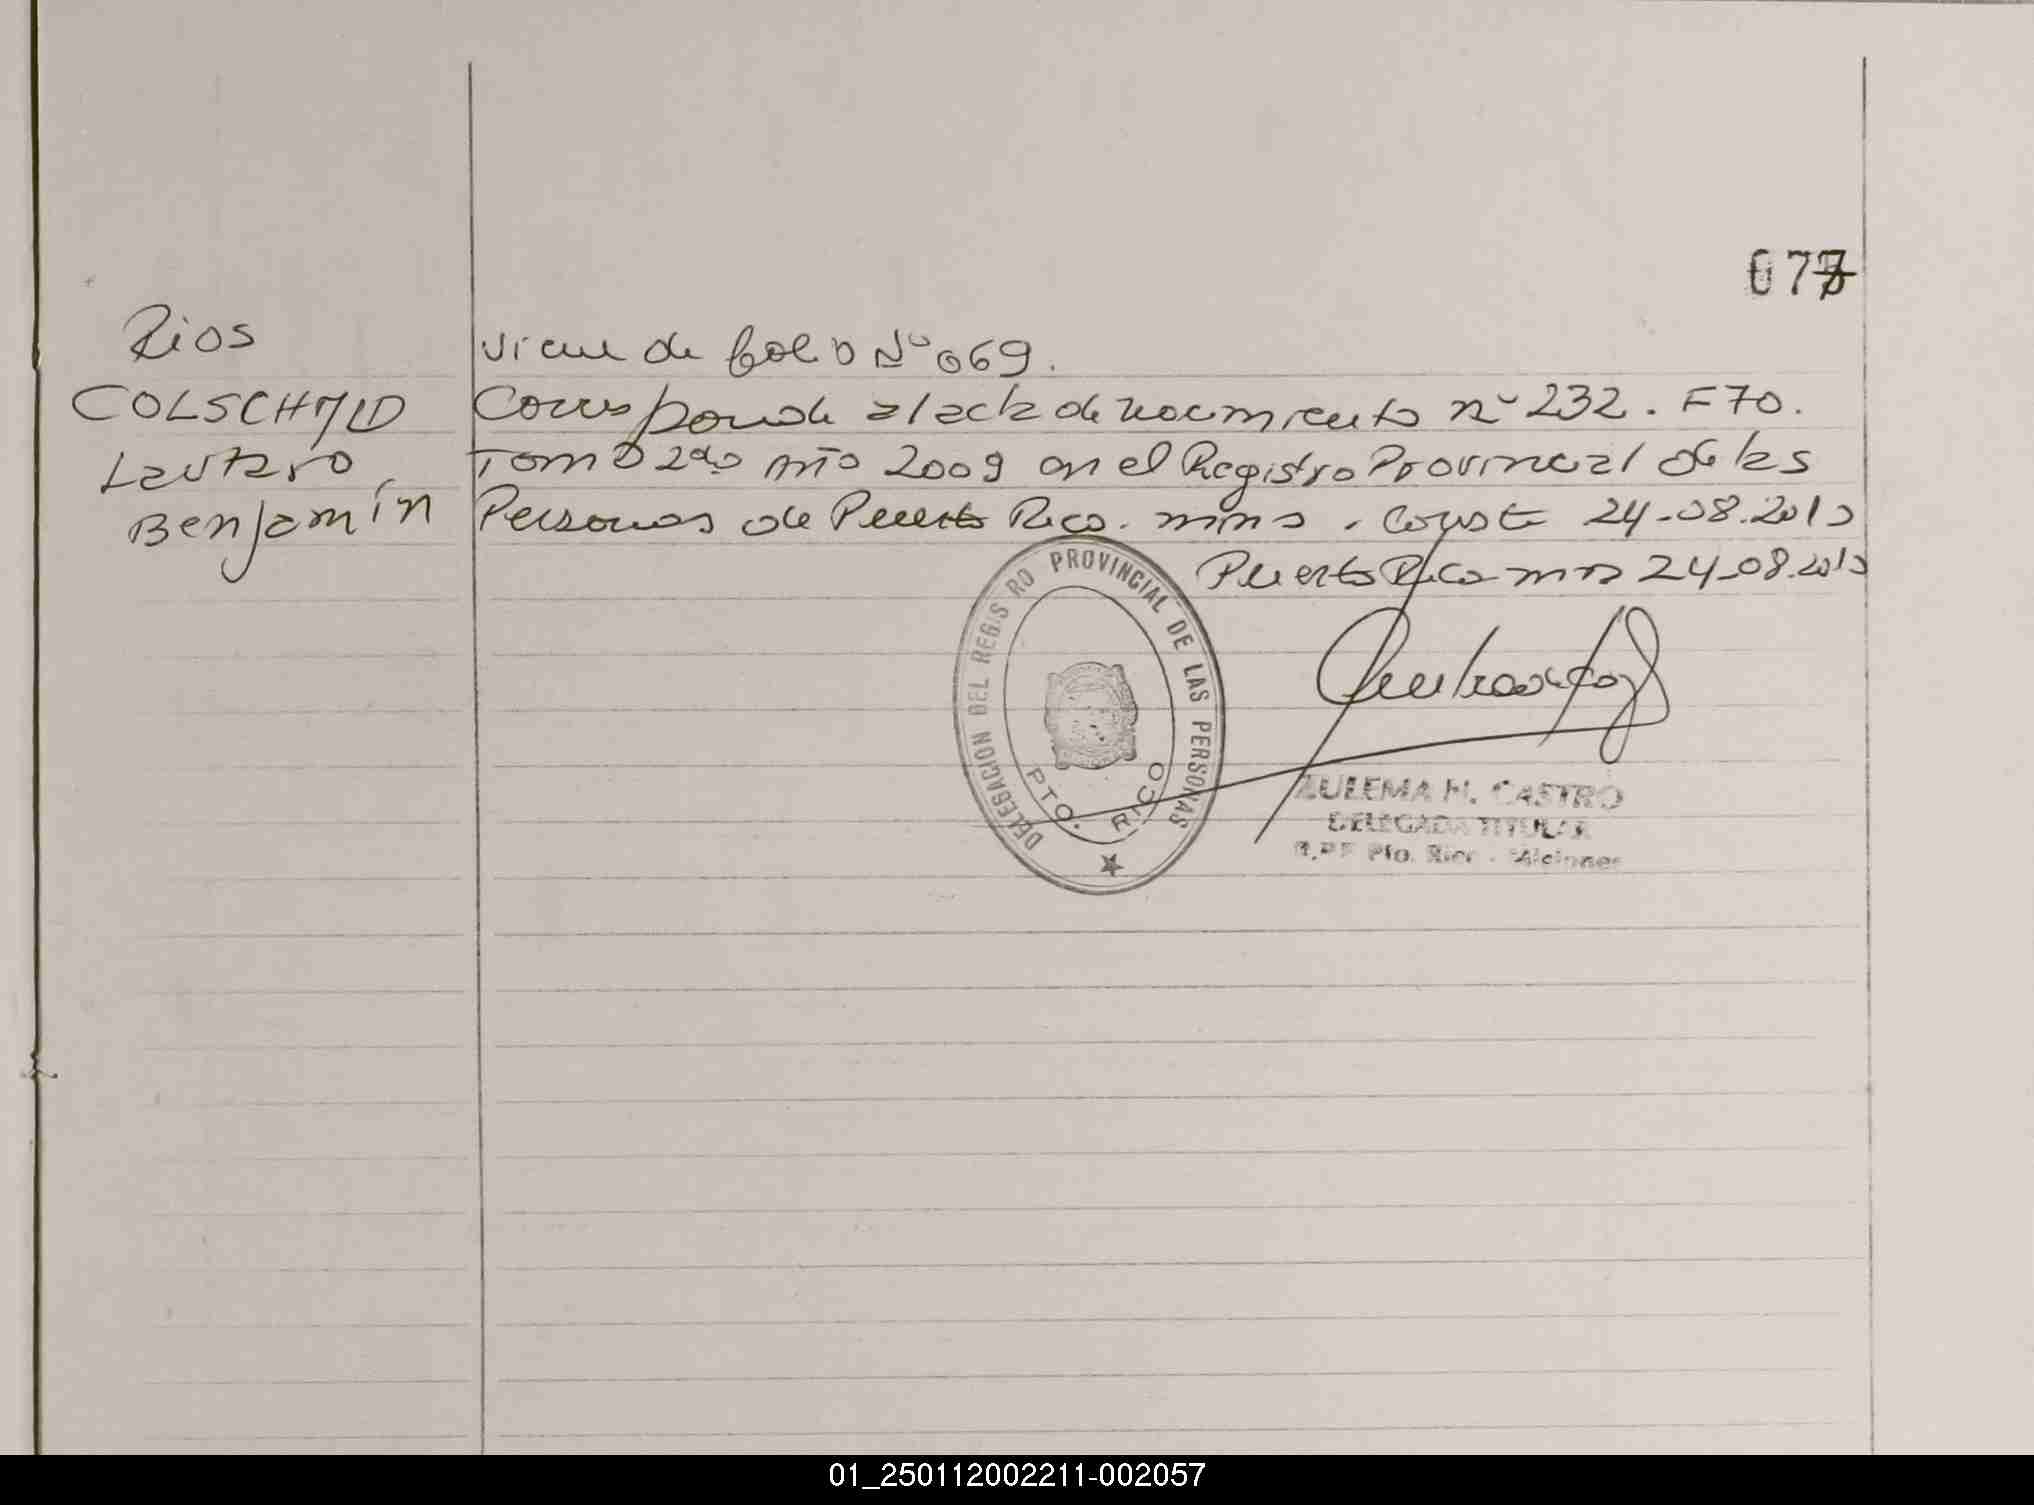 077
Rios
COLSCHMID
Lautaro
Benjamín
Viene de folio Nº 069.
Corresponde al acta de nacimiento nº 232. F 70.
Tomo 2do año 2009 en el Registro Provincial de las
Personas de Puerto Rico. mnes. Conste 24-08.2010
Puerto Rico mns 24-08.2010
DELEGACION DEL REGISTRO PROVINCIAL DE LAS PERSONAS
PTO. RICO
ZULEMA H. CASTRO
DELEGADA TITULAR
R.P.P. Pto. Rico - Misiones
01_250112002211-002057